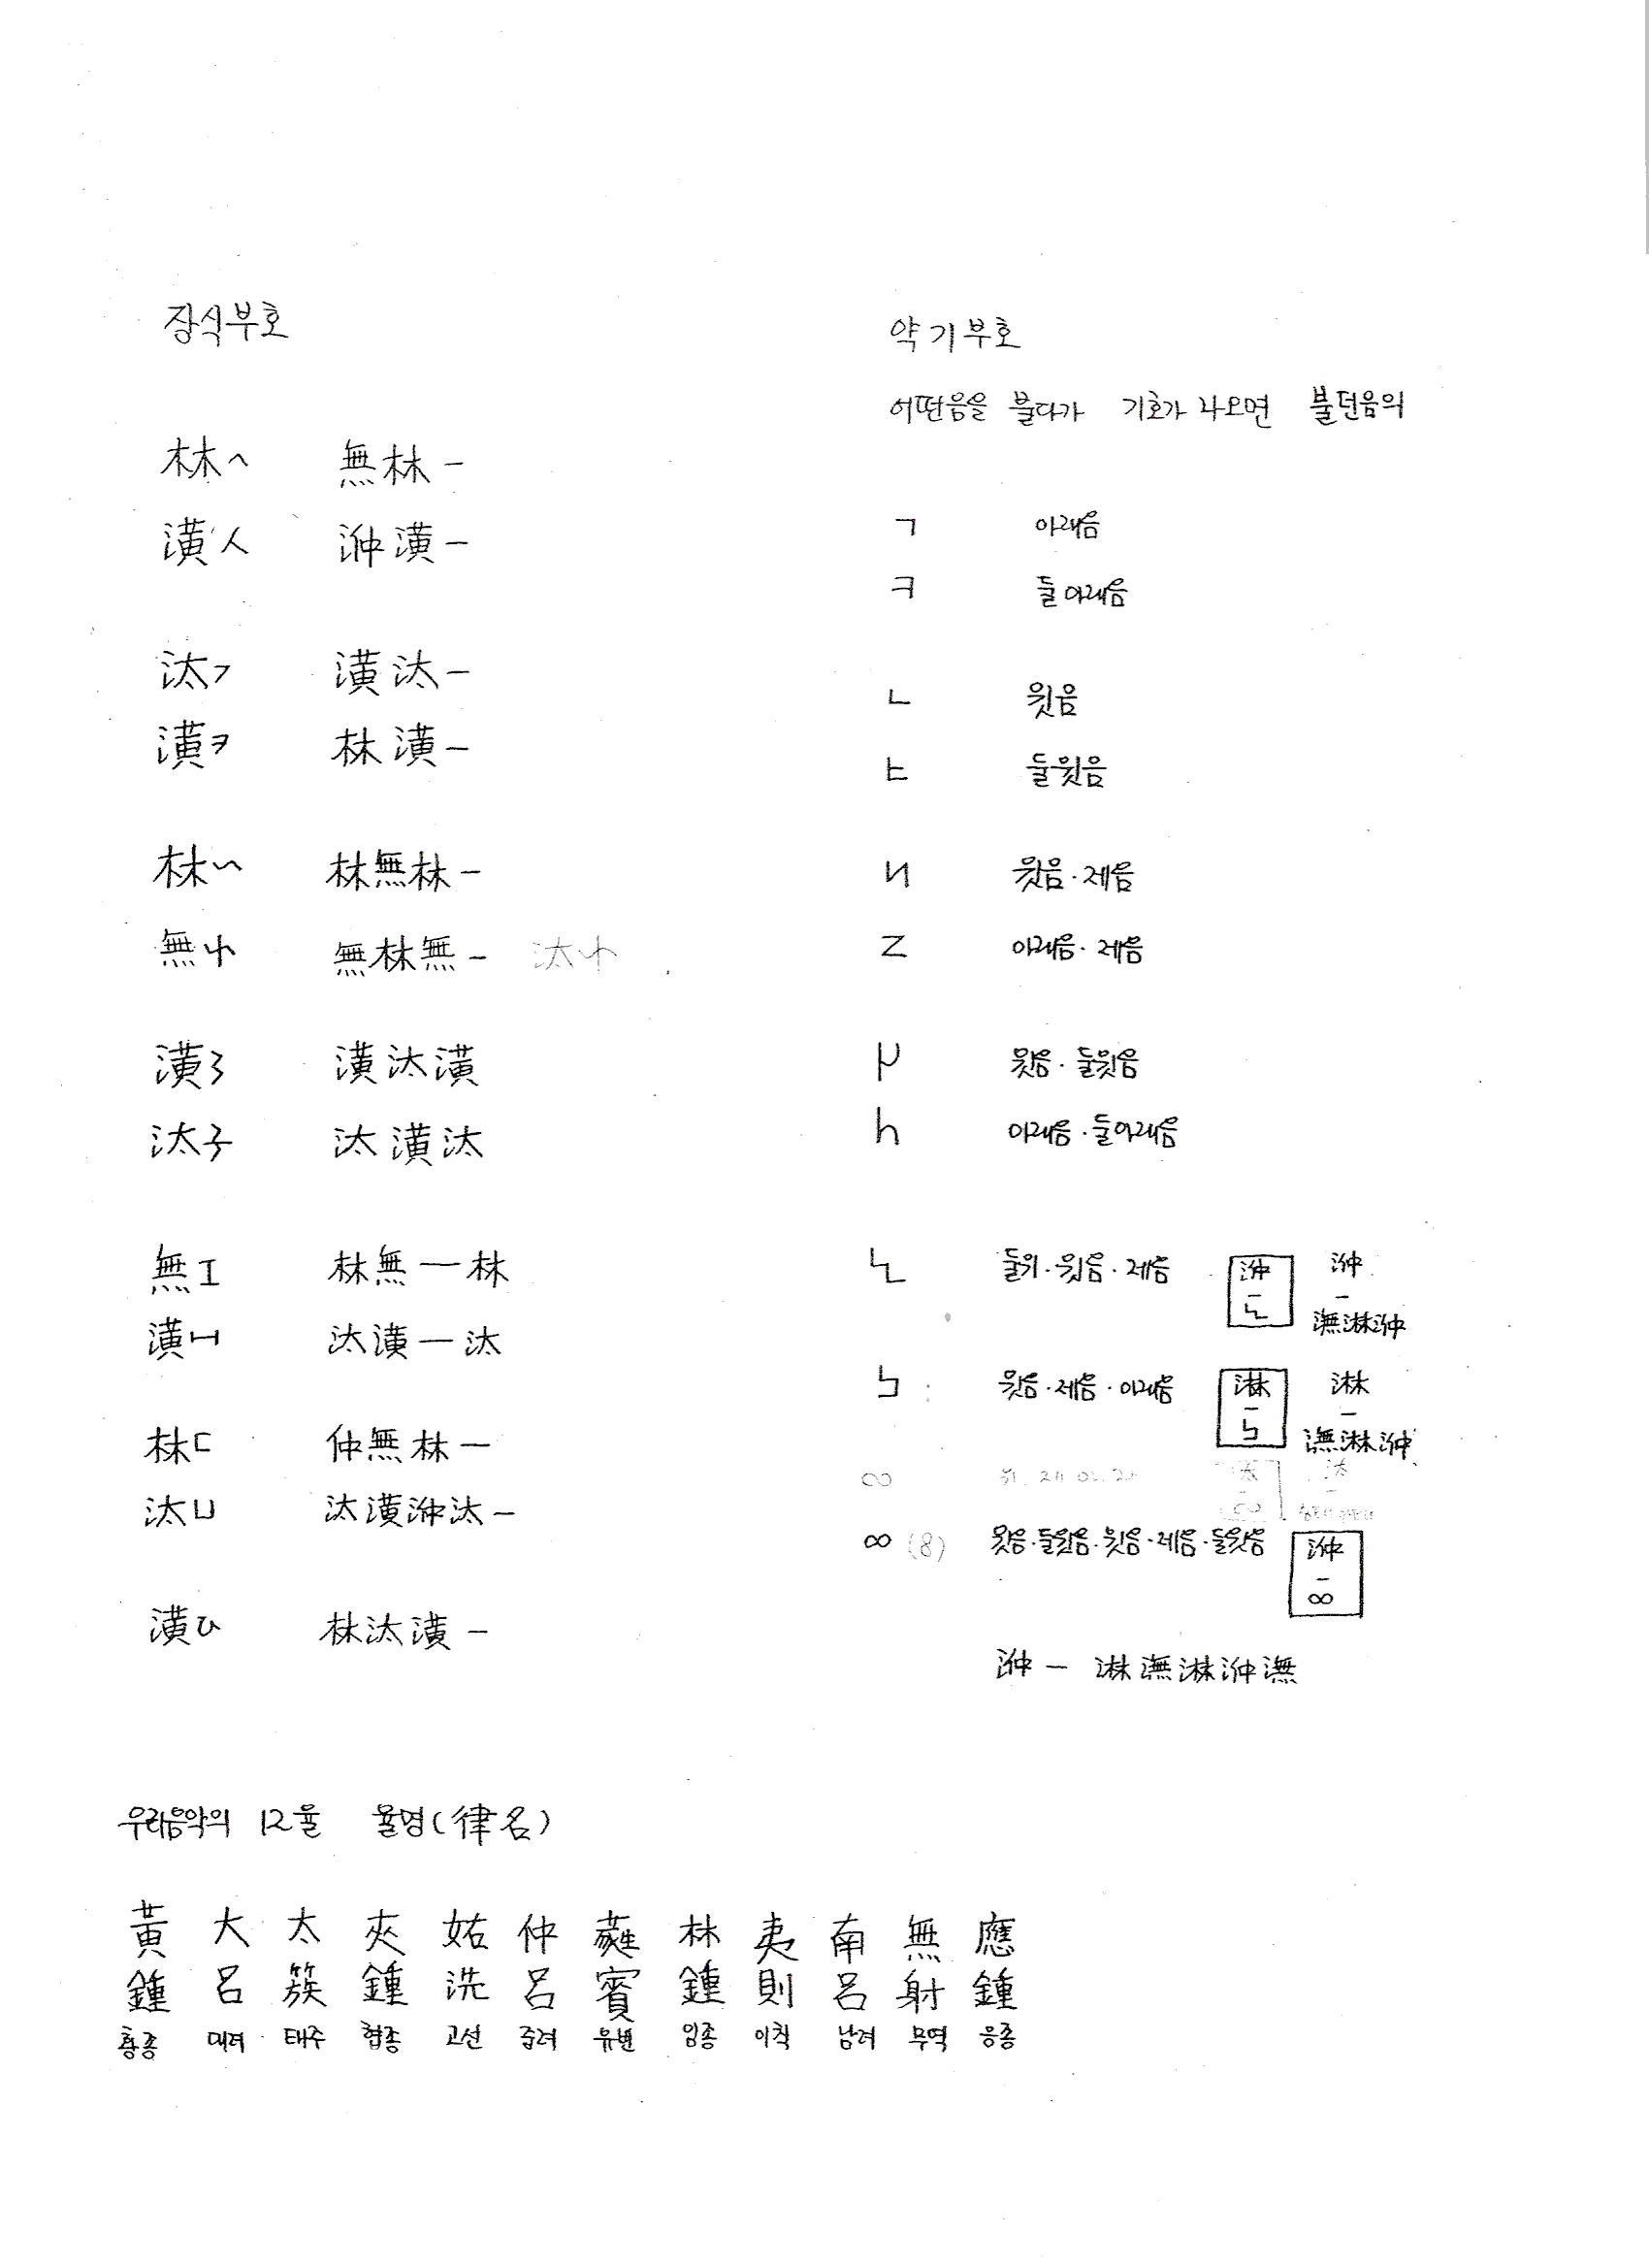 장식부호
林ヘ 無林一
潢人 㳞潢一
汰フ 潢汰一
潢ヲ 林潢一
林〽 林無林一
無 無林無一 汰
潢ろ 潢汰潢
汰子 汰潢汰
無工 林無一林
潢ㅡ 汰潢一汰
林ㄷ 仲無林一
汰ㄩ 汰潢㳞汰一
潢ひ 林汰潢一
약기부호
어떤음을 불다가 기호가 나오면 불던음의
ㄱ 아래음
ㅋ 둘아래음
ㄴ 윗음
ㅌ 둘윗음
И 윗음·제음
Z 아래음·제음
μ 윗음·둘윗음
h 아래음·둘아래음
둘위·윗음·제음 㳞 一 㳞 一 潕淋㳞
ㄣ 윗음·제음·아래음 淋 一 ㄣ 淋 一 潕淋㳞
∞
∞ (8) 윗음·둘윗음·윗음·제음·둘윗음 㳞 一 ∞
㳞 一 淋潕淋㳞潕
우리음악의 12율 율명(律名)
黃鍾 大呂 太簇 夾鍾 姑洗 仲呂 蕤賓 林鍾 夷則 南呂 無射 應鍾
황종 대려 태주 협종 고선 중려 유빈 임종 이칙 남려 무역 응종